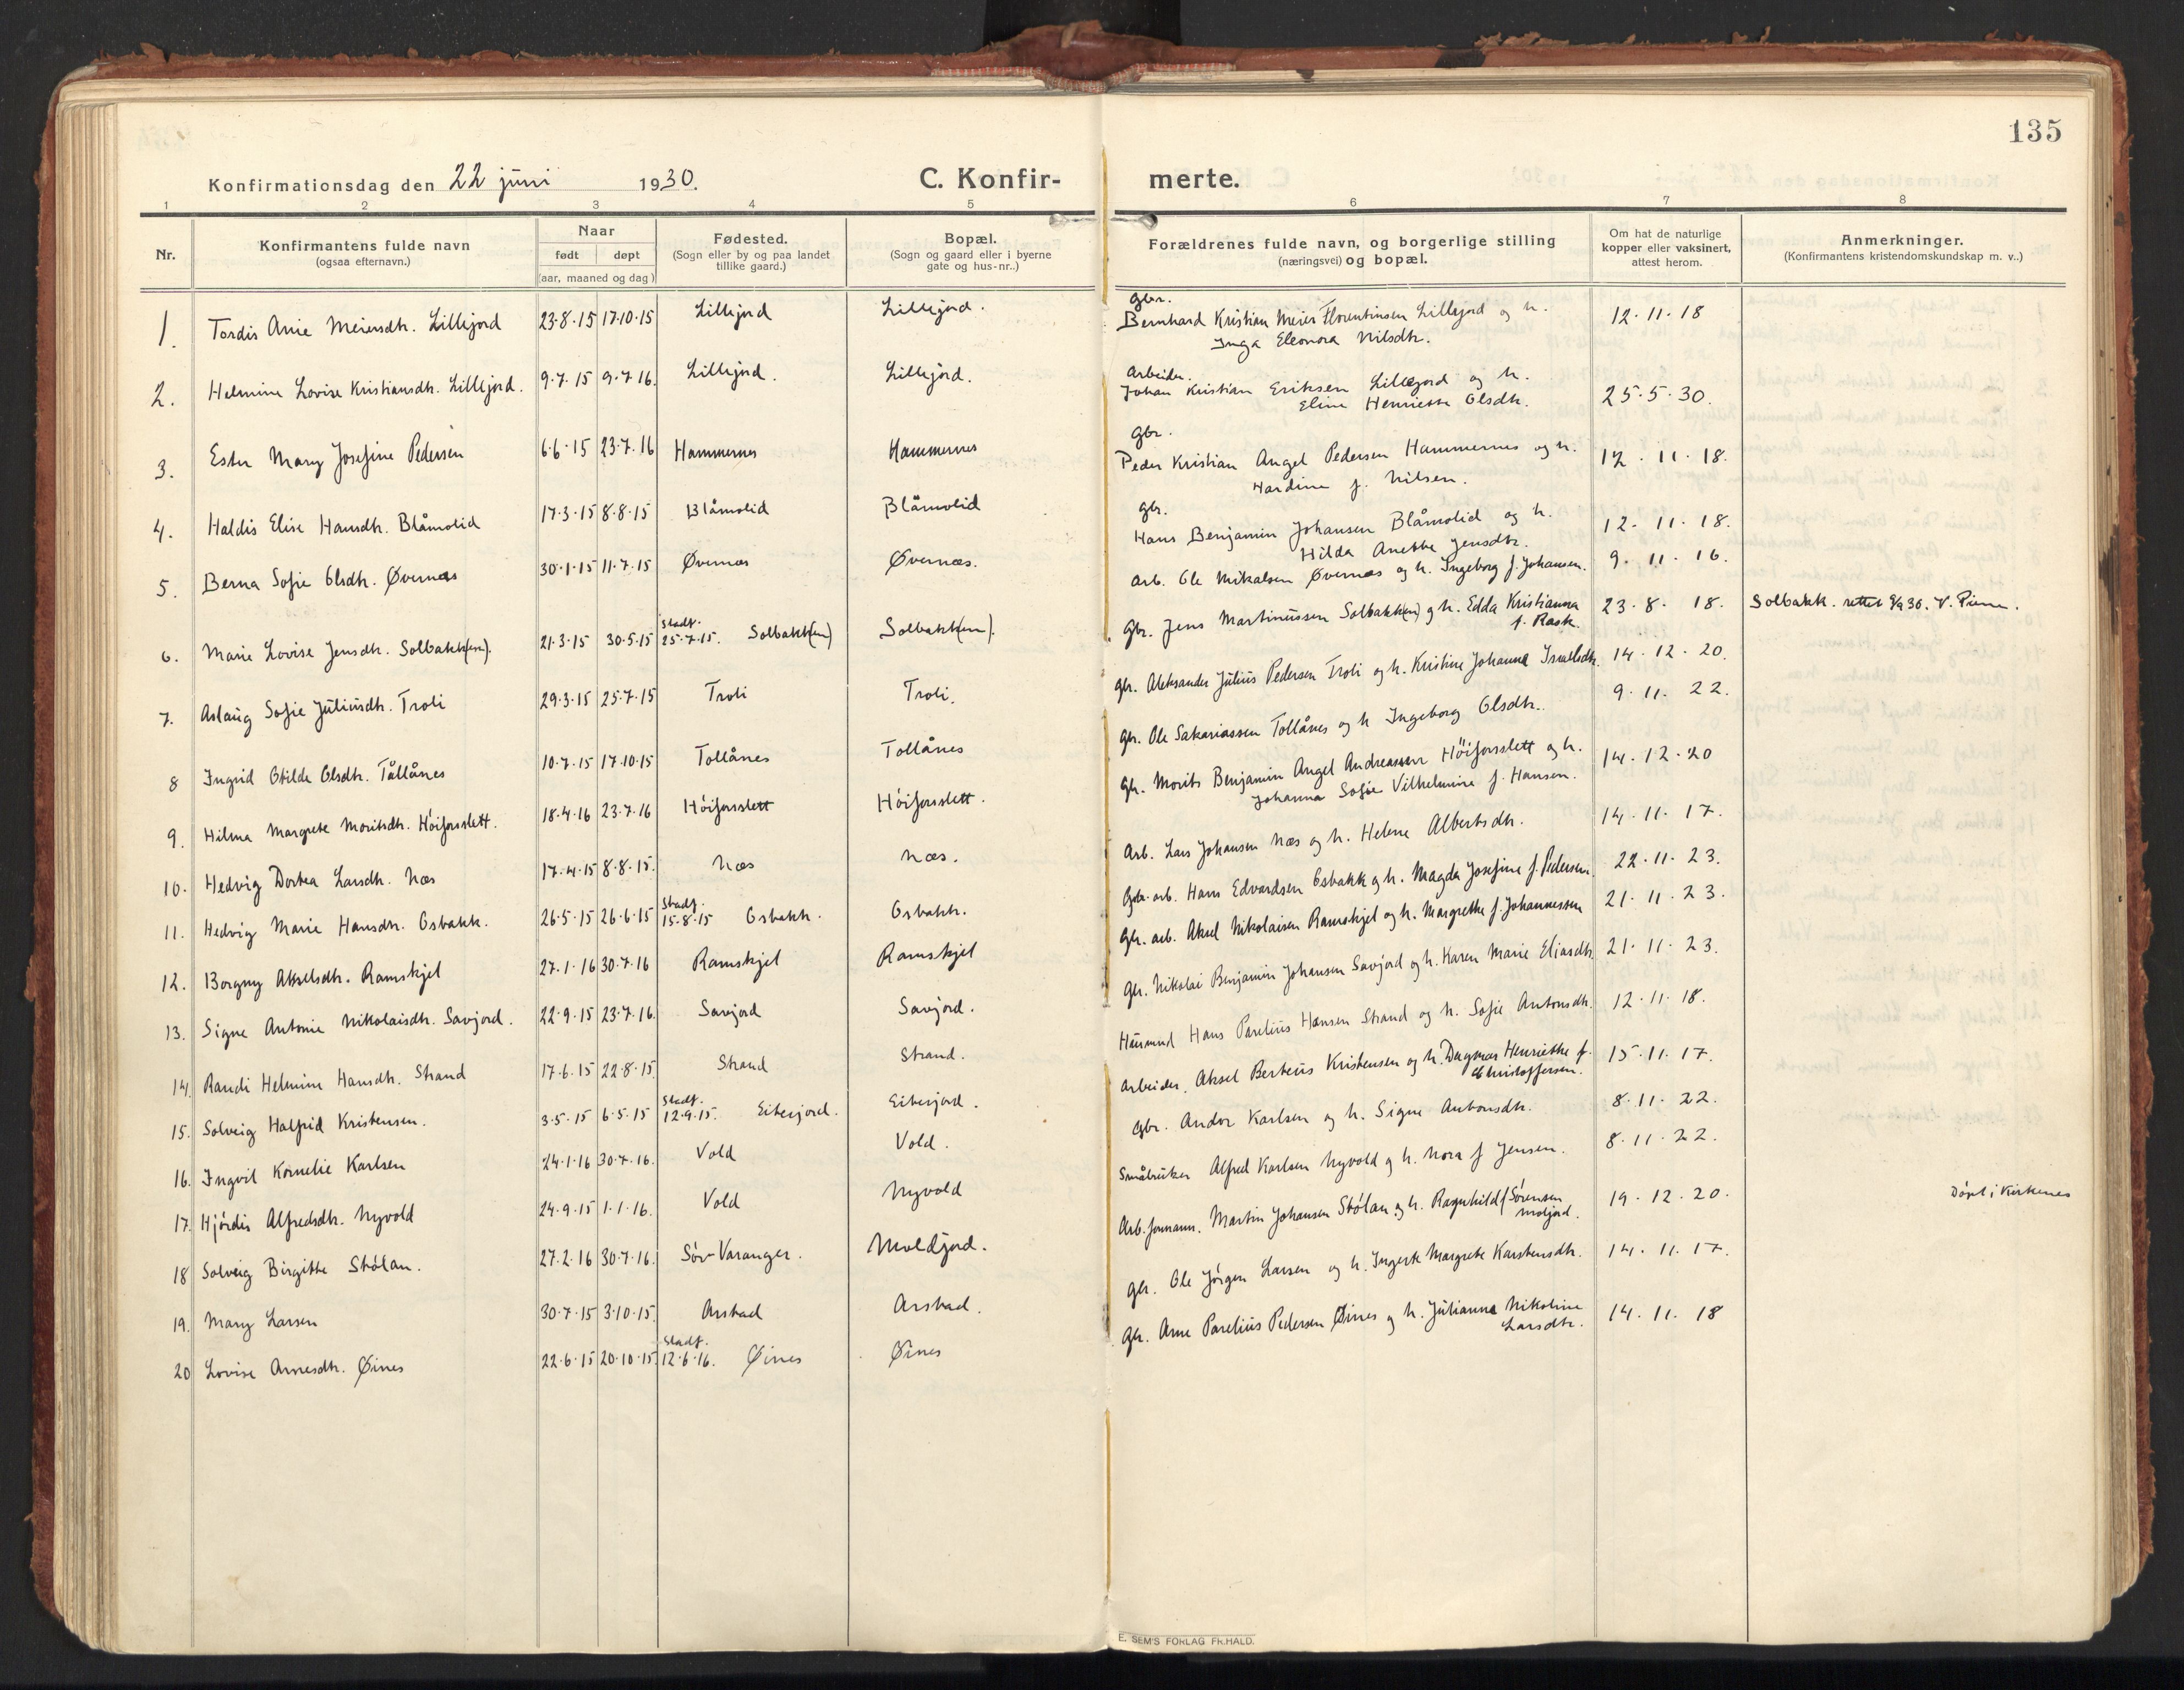 135
Konfirmationsdag den 22 juni 1930.
C. Konfir- merte.
1 2 3 4 5 6 7 8
Nr.
Konfirmantens fulde navn
(ogsaa efternavn.)
Naar
født døpt
(aar, maaned og dag)
Fødested.
(Sogn eller by og paa landet
tillike gaard.)
Bopæl.
(Sogn og gaard eller i byerne
gate og hus-nr..)
Forældrenes fulde navn, og borgerlige stilling
(næringsvei) og bopæl.
Om hat de naturlige
kopper eller vaksinert,
attest herom.
Anmerkninger.
(Konfirmantens kristendomskundskap m. v..)
1. Tordis Anie Meiersdtr. Lillejord 23·8·15 17·10·15 Lillejord Lillejord.
Gbr.
Bernhard Kristian Meier Florentinsen Lillejord og h. 12·11·18
Inga Eleonora Nilsdtr.
2. Helmine Lovise Kristiansdtr. Lillejord. 9·7·15 9·7·16. Lillejord. Lillejord.
Arbeider.
Johan Kristian Eriksen Lillejord og h. 25·5·30.
Eline Henriette Olsdtr.
3. Ester Mary Josefine Pedersen 6·6·15 23·7·16 Hammernes Hammernes
Gbr.
Peder Kristian Angel Pedersen Hammernes og h. 12·11·18.
Hardine f. Nilsen.
4. Haldis Elise Hansdtr. Blåmolid 17·3·15 8·8·15 Blåmolid Blåmolid
Gbr.
Hans Benjamin Johansen Blåmolid og h. 12·11·18.
Hilda Anette Jensdtr.
5. Berna Sofie Olsdtr. Øvernæs 30·1·15 11·7·15 Øvernæs Øvernæs.
Arb. Ole Mikalsen Øvernæs og h. Ingeborg f. Johansen. 9·11·16.
6. Marie Lovise Jensdtr. Solbakk(en). 21·3·15 30·5·15 Stadf. 25·7·15. Solbakk(en) Solbakk(en).
Gbr. Jens Martinussen Solbakk(en) og h. Edda Kristianna 23·8·18. Solbakk. rettet 30. V.
f. Rask.
7. Aslaug Sofie Juliusdtr. Troli 29·3·15 25·7·15 Troli Troli.
Gbr. Aleksander Julius Pedersen Troli og h. Kristine Johanna Israelsdtr. 14·12·20.
8 Ingrid Otilde Olsdtr. Tållånes 10·7·15 17·10·15 Tollånes Tollånes
Gbr. Ole Sakariassen Tollånes og h Ingeborg Olsdtr. 9·11·22.
9. Hilma Margrete Moritsdtr. Höiforsslett. 18·4·16 23·7·16 Höiforsslett Höiforsslett.
Gbr. Morits Benjamin Angel Andreassen Höiforsslett og h. 14·12·20
Johanna Sofie Vilhelmine f. Hansen.
10. Hedvig Dortea Larsdtr. Næs 17·4·15 8·8·15. Næs Næs.
Arb. Lars Johansen Næs og h. Helene Albertsdtr. 14·11·17.
11. Hedvig Marie Hansdtr. Osbakk. 26·5·15 26·6·15 Stadf. 15·8·15 Osbakk. Osbakk.
Gbr. arb. Hans Edvardsen Osbakk og h. Magda Josefine f. Pedersen. 22·11·23.
12. Borgny Akselsdtr. Ramskjel 27·1·16 30·7·16 Ramskjel Ramskjel
Gbr. arb. Aksel Nikolaisen Ramskjel og h. Margrethe f. Johannessen 21·11·23.
13. Signe Antonie Nikolaisdtr. Savjord. 22·9·15 23·7·16. Savjord Savjord.
Gbr. Nikolai Benjamin Johansen Savjord og h. Karen Marie Eliasdtr. 21·11·23.
14. Randi Helmine Hansdtr. Strand 17·6·15 22·8·15. Strand Strand.
Husmand Hans Parelius Hansen Strand og h. Sofie Antonsdtr. 12·11·18.
15. Solveig Halfrid Kristensen. 3·5·15 6·5·15 Stadf. 12·9·15. Eiterjord. Eiterjord.
Arbeider. Aksel Berteus Kristensen og h. Dagmar Henriette f. 15·11·17.
Christoffersen.
16. Ingvil Kornelie Karlsen 24·1·16 30·7·16. Vold Vold.
Gbr. Andor Karlsen og h. Signe Antonsdtr. 8·11·22.
17. Hjördis Alfredsdtr. Nyvold 24·9·15 1·1·16. Vold Nyvold
Småbruker Alfred Karlsen Nyvold og h. Nora f Jensen. 8·11·22.
18 Solveig Birgitte Stölan. 27·2·16 30·7·16. Sör-Varanger. Moldjord.
Arb. formann. Martin Johansen Stölan og h. Ragnhild f Sörensen 19·12·20. Döpt i Kirkenes
Moljord.
19. Mary Larsen 30·7·15 3·10·15. Arstad Arstad.
Gbr. Ole Jörgen Larsen og h. Ingerte Margrete Karstensdtr. 14·11·17.
20 Lovise Arnesdtr. Øines 22·6·15 20·10·15 Stadf. 12·6·16. Øines Øines
Gbr. Arne Parelius Pedersen Øines og h. Julianna Nikoline 14·11·18
Larsdtr.
E. SEM'S FORLAG FR.HALD.